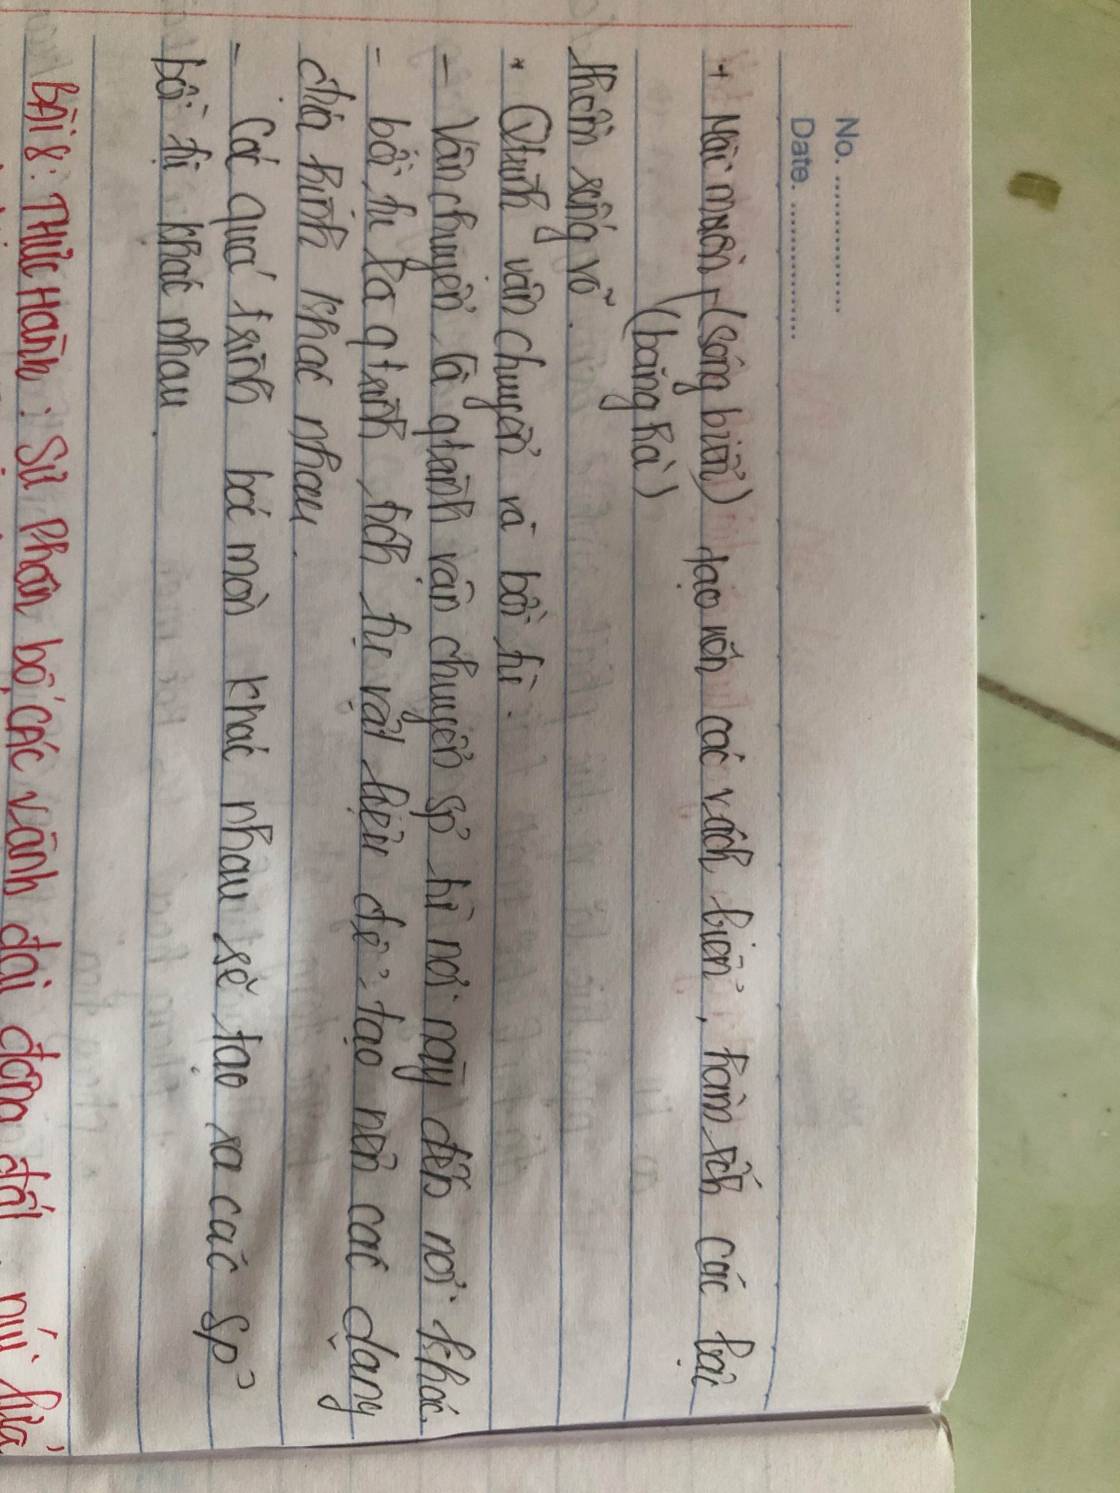 No. ................
Date. ................
+ Mài mòn, (sóng biển) tạo nên các vách biển, hàm ếch các bậc
(băng hà)
thềm sóng vỗ.
* Qtrình vận chuyển và bồi tụ.
- Vận chuyển là qtrình vận chuyển sp từ nơi này đến nơi khác.
- bồi tụ là qtrình tích tụ vật liệu để tạo nên các dạng
địa hình khác nhau.
- Các quá trình bóc mòn khác nhau sẽ tạo ra các sp
bồi tụ khác nhau.
BÀI 8: THỰC HÀNH: SỰ PHÂN BỐ CÁC vành đai động đất, núi lửa